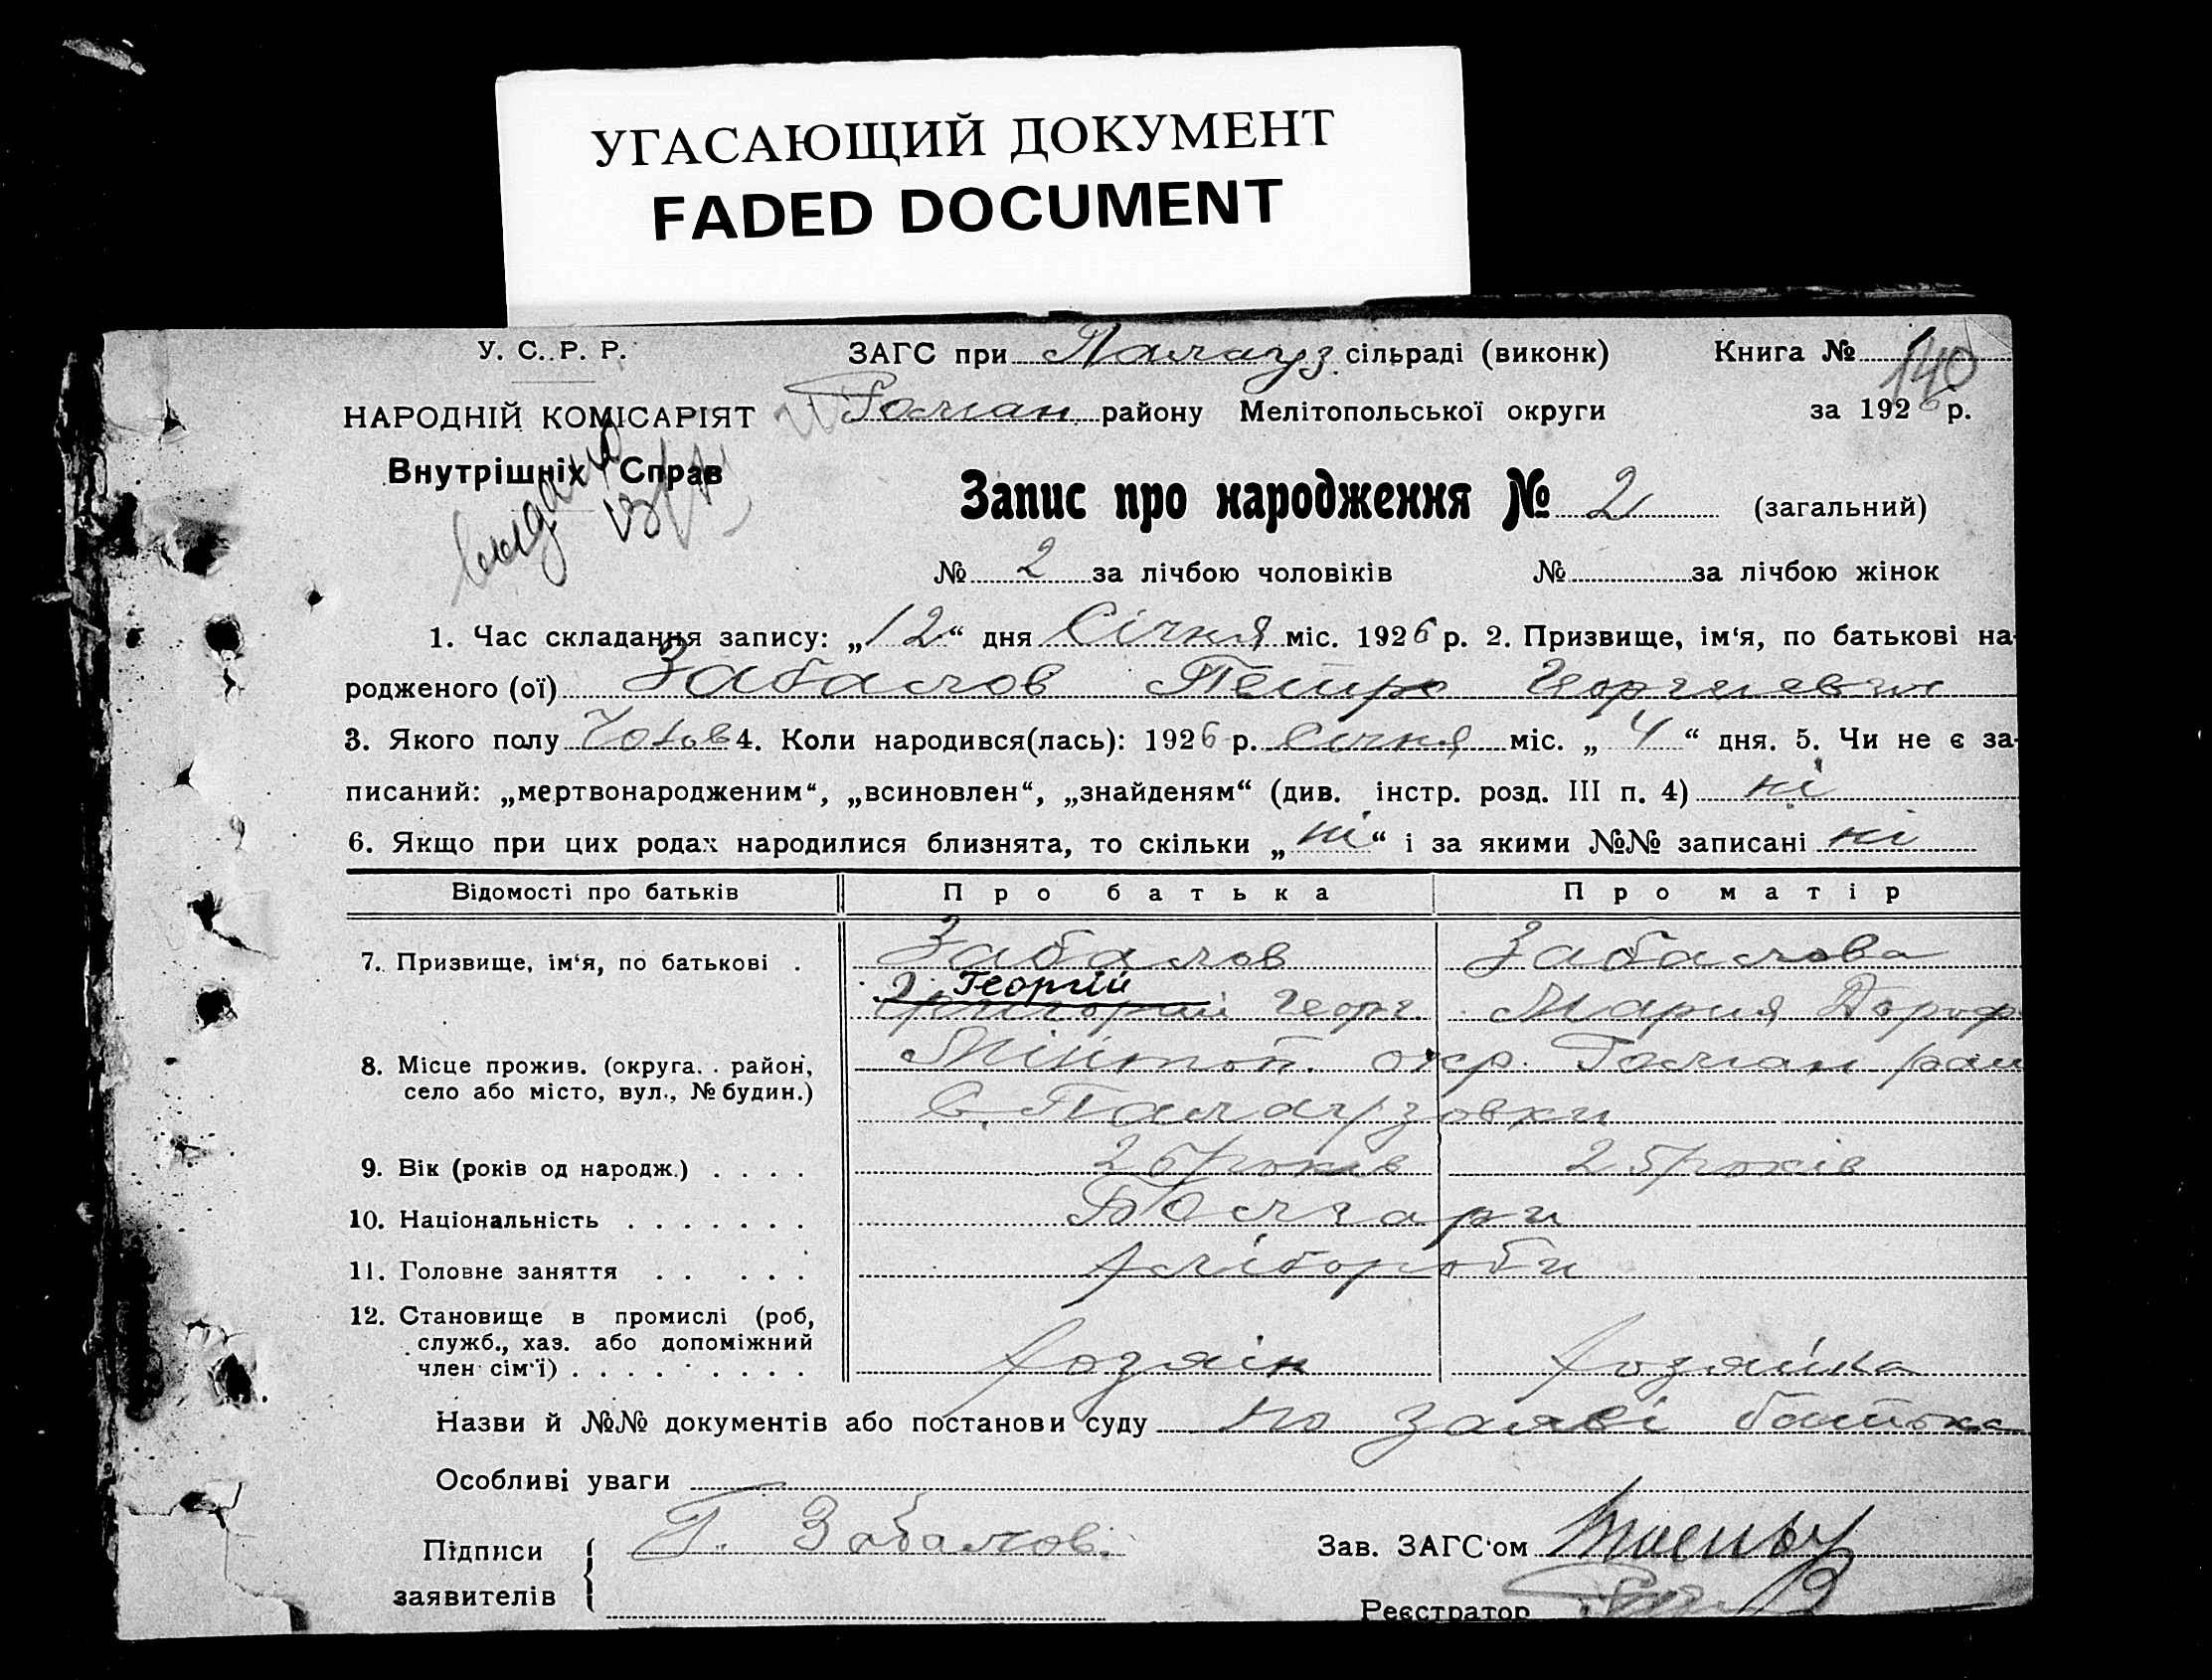 УГАСАЮЩИЙ ДОКУМЕНТ
FADED DOCUMENT
У. С. Р. Р. ЗАГС при Палауз. сільраді (виконк) Книга № 1
140
НАРОДНІЙ КОМІСАРІЯТ Ботган. району Мелітопольської округи за 1926 р.
Внутрішніх Справ
Запис про народження № 2 (загальний)
№ 2 за лічбою чоловіків № за лічбою жінок
1. Час складання запису: „12“ дня Січня міс. 1926 р. 2. Призвище, ім‘я, по батькові на-
родженого (ої) Забалов Петро Георгиевич
3. Якого полу Чолов 4. Коли народився(лась): 1926 р. Січня міс. „4“ дня. 5. Чи не є за-
писаний: „мертвонародженим“, „всиновлен“, „знайденям“ (див. інстр. розд. III п. 4) ні
6. Якщо при цих родах народилися близнята, то скільки „ні“ і за якими №№ записані ні
Відомості про батьків Про батька Про матір
7. Призвище, ім‘я, по батькові . Забалов Забалова
Георгій
Григорий Георг. Мария Дороф
8. Місце прожив. (округа, район, Мінтоп. окр. Болган рай
село або місто, вул., № будин.) С. Палаузовки
9. Вік (років од народж.) . . . . 26 років 25 років
10. Національність . . . . . . . Болгари
11. Головне заняття . . . . . Хлібороби
12. Становище в промислі (роб,
служб., хаз. або допоміжний
член сім‘ї) . . . . . . . . Хозяін Хозяйка
Назви й №№ документів або постанови суду по заяві батька
Особливі уваги
Підписи Г. Забалов. Зав. ЗАГС‘ом
заявителів
Реєстратор